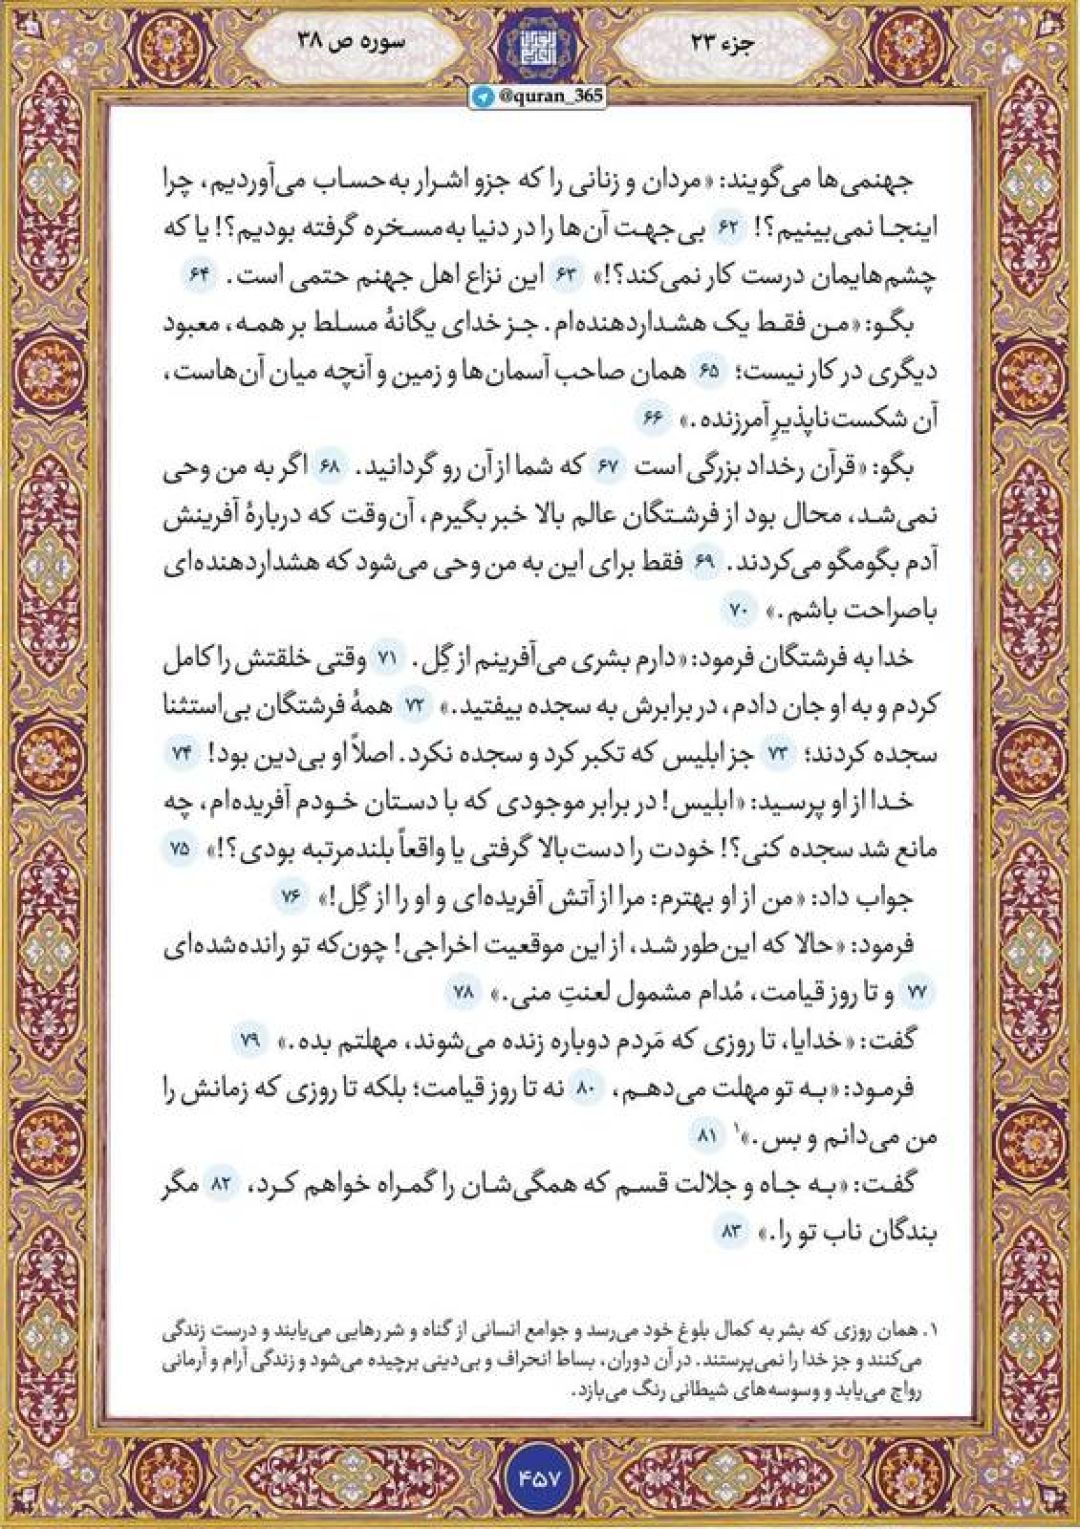 جزء ۲۳
سوره ص ۳۸
@quran_365
جهنمی‌ها می‌گویند: «مردان و زنانی را که جزو اشرار به‌حساب می‌آوردیم، چرا
اینجا نمی‌بینیم؟! ۶۲ بی‌جهت آن‌ها را در دنیا به‌مسخره گرفته بودیم؟! یا که
چشم‌هایمان درست کار نمی‌کند؟!» ۶۳ این نزاع اهل جهنم حتمی است. ۶۴
بگو: «من فقط یک هشداردهنده‌ام. جز خدای یگانهٔ مسلط بر همه، معبود
دیگری در کار نیست؛ ۶۵ همان صاحب آسمان‌ها و زمین و آنچه میان آن‌هاست،
آن شکست‌ناپذیرِ آمرزنده.» ۶۶
بگو: «قرآن رخداد بزرگی است ۶۷ که شما از آن رو گردانید. ۶۸ اگر به من وحی
نمی‌شد، محال بود از فرشتگان عالم بالا خبر بگیرم، آن‌وقت که دربارهٔ آفرینش
آدم بگومگو می‌کردند. ۶۹ فقط برای این به من وحی می‌شود که هشداردهنده‌ای
باصراحت باشم.» ۷۰
خدا به فرشتگان فرمود: «دارم بشری می‌آفرینم از گِل. ۷۱ وقتی خلقتش را کامل
کردم و به او جان دادم، در برابرش به سجده بیفتید.» ۷۲ همهٔ فرشتگان بی‌استثنا
سجده کردند؛ ۷۳ جز ابلیس که تکبر کرد و سجده نکرد. اصلاً او بی‌دین بود! ۷۴
خدا از او پرسید: «ابلیس! در برابر موجودی که با دستان خودم آفریده‌ام، چه
مانع شد سجده کنی؟! خودت را دست‌بالا گرفتی یا واقعاً بلندمرتبه بودی؟!» ۷۵
جواب داد: «من از او بهترم: مرا از آتش آفریده‌ای و او را از گِل!» ۷۶
فرمود: «حالا که این‌طور شد، از این موقعیت اخراجی! چون‌که تو رانده‌شده‌ای
۷۷ و تا روز قیامت، مُدام مشمول لعنتِ منی.» ۷۸
گفت: «خدایا، تا روزی که مَردم دوباره زنده می‌شوند، مهلتم بده.» ۷۹
فرمود: «به تو مهلت می‌دهم، ۸۰ نه تا روز قیامت؛ بلکه تا روزی که زمانش را
من می‌دانم و بس.»۱ ۸۱
گفت: «به جاه و جلالت قسم که همگی‌شان را گمراه خواهم کرد، ۸۲ مگر
بندگان ناب تو را.» ۸۳
۱. همان روزی که بشر به کمال بلوغ خود می‌رسد و جوامع انسانی از گناه و شر رهایی می‌یابند و درست زندگی
می‌کنند و جز خدا را نمی‌پرستند. در آن دوران، بساط انحراف و بی‌دینی برچیده می‌شود و زندگی آرام و آرمانی
رواج می‌یابد و وسوسه‌های شیطانی رنگ می‌بازد.
۴۵۷